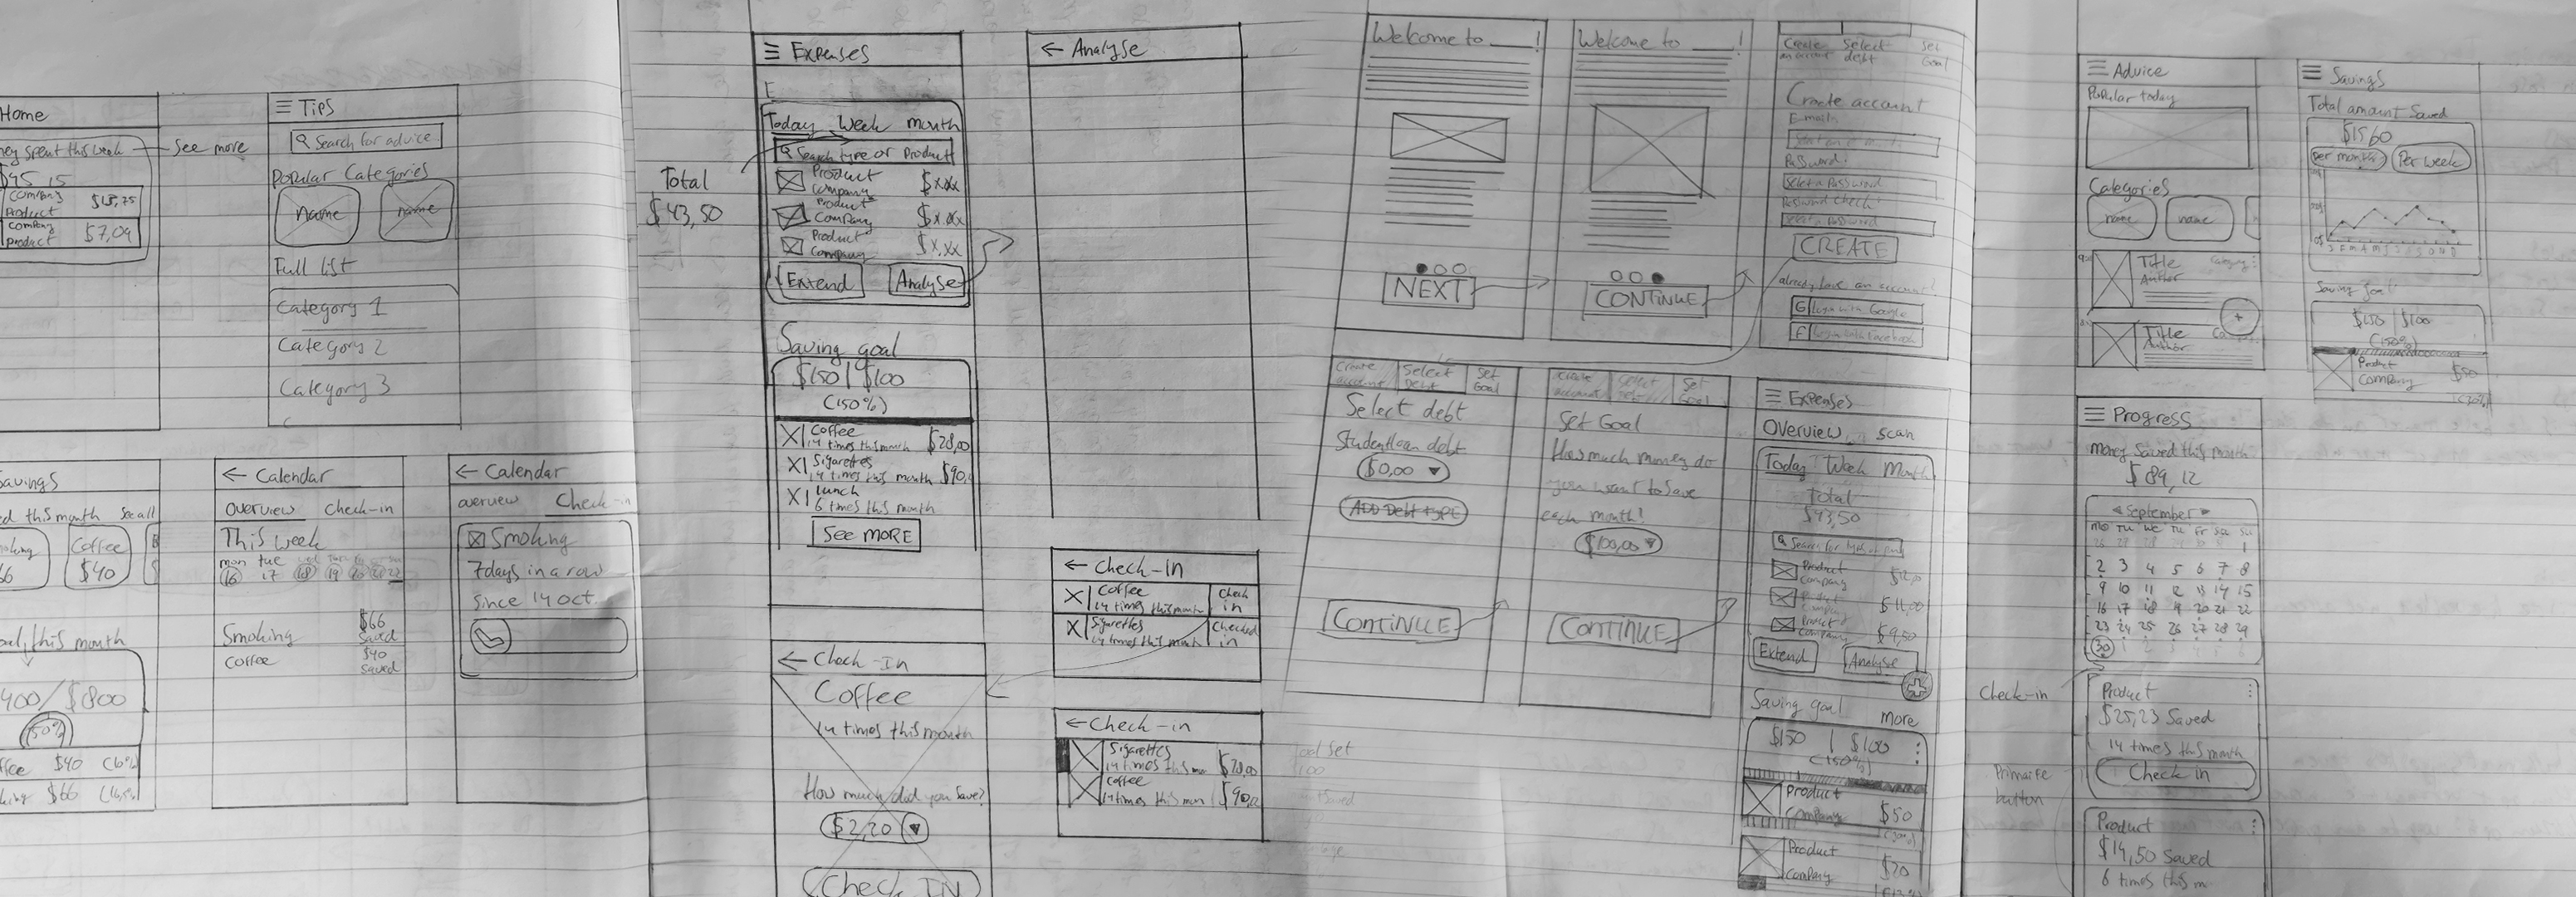 Home
ney spent this week
See more
$45,15
Company
Product
$18,75
Company
product
$7,09
☰ Tips
Search for advice
Popular Categories
name
name
Full list
Category 1
Category 2
Category 3
Savings
ed this month
See all
oking
66
Coffee
$40
oal, this month
400/$800
(50%)
ffee $40
king $66
← Calendar
Overview Check-in
This week
mon tue
16 17 18 19
Smoking
$66
Saved
Coffee
$40
Saved
← Calendar
overview Check-in
Smoking
7 days in a row
Since 14 oct.
Total
$43,50
☰ Expenses
E
Today Week month
Search type or Product
Product
Company
$x.xx
Product
Company
$x.xx
Product
Company
$x.xx
Extend
Analyse
Saving goal
$150 | $100
(150%)
Coffee
14 times this month
$28,00
Sigarettes
14 times this month
$90,
lunch
6 times this month
See MORE
← Check-In
Coffee
14 times this month
How much did you save?
$2,20
Check IN
← Analyse
← Check-in
Coffee
14 times this month
Check
in
Sigarettes
14 times this month
Checked
in
← Check-in
Sigarettes
14 times this mon
$28,00
Coffee
14 times this mon
Welcome to ___!
NEXT
Welcome to ___!
CONTINUE
Create
an account
Select
debt
Set
Goal
Create account
E-mail:
Password:
Select a Password
Password Check:
Select a Password
CREATE
already have an account?
G Login with Google
F Login with Facebook
Create
account
Select
Debt
Set
Goal
Select debt
Student loan debt
$0,00
ADD Debt type
CONTINUE
Create
account
Select
Set
Goal
Set Goal
How much money do
you want to save
each month?
$100,00
CONTINUE
☰ Expenses
Overview scan
Today Week Month
Total
$43,50
Product
Company
Product
Company
$11,00
Product
Company
$9,50
Extend
Analyse
Saving goal
more
$150 | $100
(150%)
Product
Company
$50
Product
Company
$20
☰ Advice
Popular today
Categories
name
name
Title
Author
Category
Title
Author
☰ Savings
Total amount Saved
$1560
Per month
Per week
Saving goal
$150 | $100
(150%)
Product
Company
$50
☰ Progress
money Saved this month
$89,12
September
Mo Tu We Tu Fr Sa Su
1
2 3 4 5 6 7 8
9 10 11 12 13 14 15
16 17 18 19 20 21 22
23 24 25 26 27 28 29
30 1 2 3 4 5 6
Check-in
Product
$25,23 Saved
14 times this month
Check in
Primaire
button
Product
$14,50 Saved
6 times this m